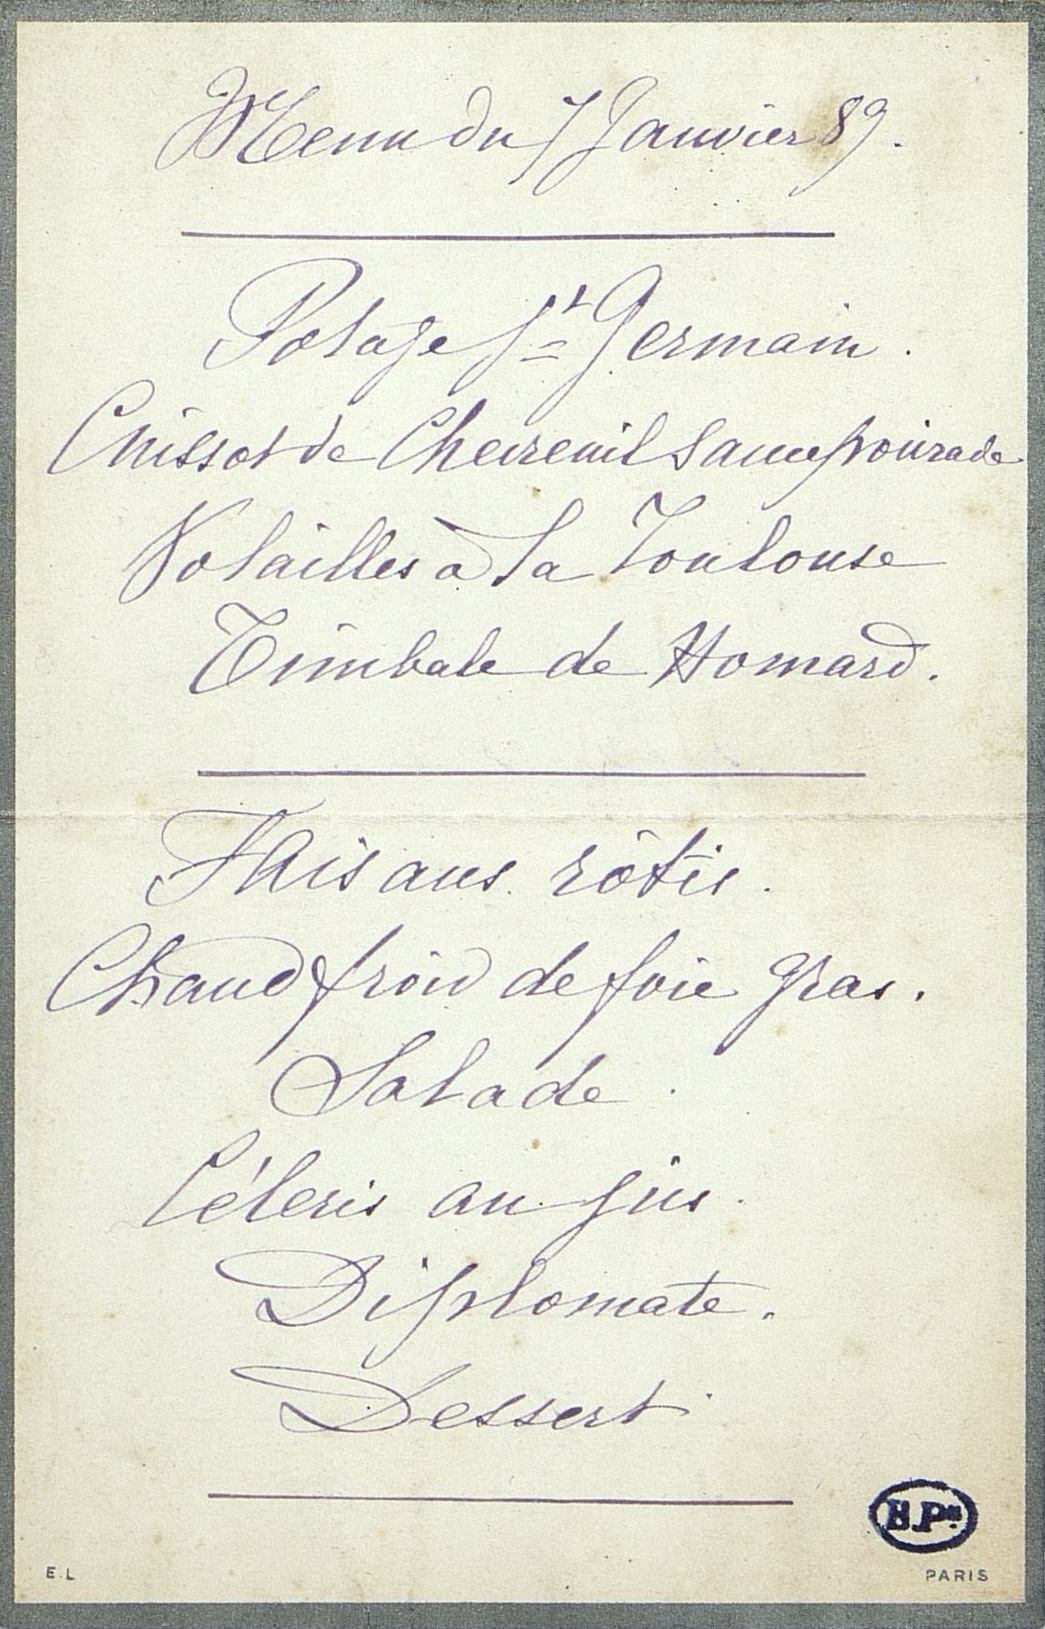 Menu du 7 Janvier 89.
Potage St Germain.
Cuissot de Chevreuil Sauce poivrade
Volailles à la Toulouse
Timbale de Homard.
Faisans rôtis.
Chaud froid de foie gras.
Salade.
Céleris au jus.
Diplomate.
Dessert.
B.Pn.
E.L PARIS